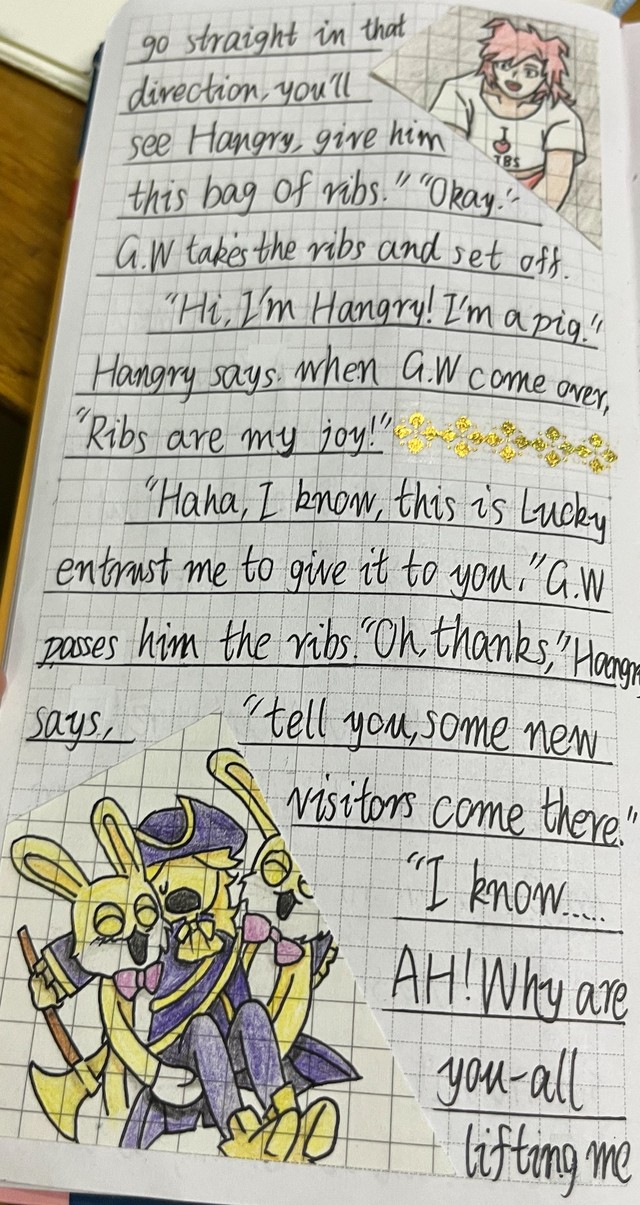 go straight in that
direction, you'll
see Hangry, give him
this bag of ribs." "Okay."
G.W takes the ribs and set off.
"Hi, I'm Hangry! I'm a pig."
Hangry says. when G.W come over,
"Ribs are my joy!"
"Haha, I know, this is Lucky
entrust me to give it to you." G.W
passes him the ribs. "Oh, thanks," Hangry
says, "tell you, some new
visitors come there."
"I know.....
AH! Why are
you-all
lifting me
I
TBS